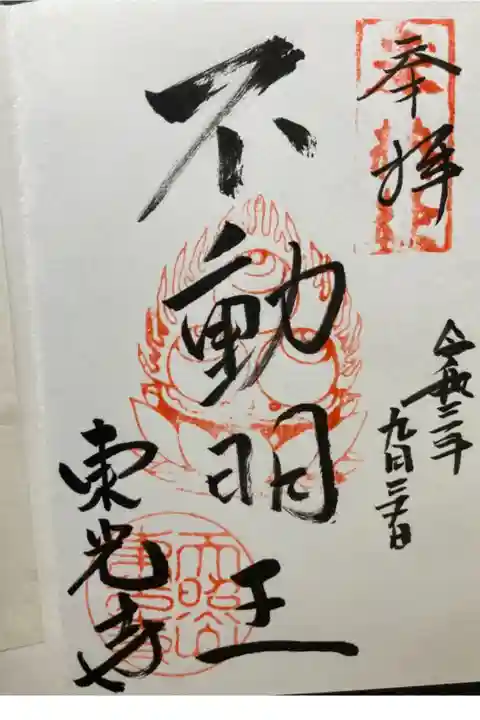 奉拝
令和二年
九月
不動明王
東光寺